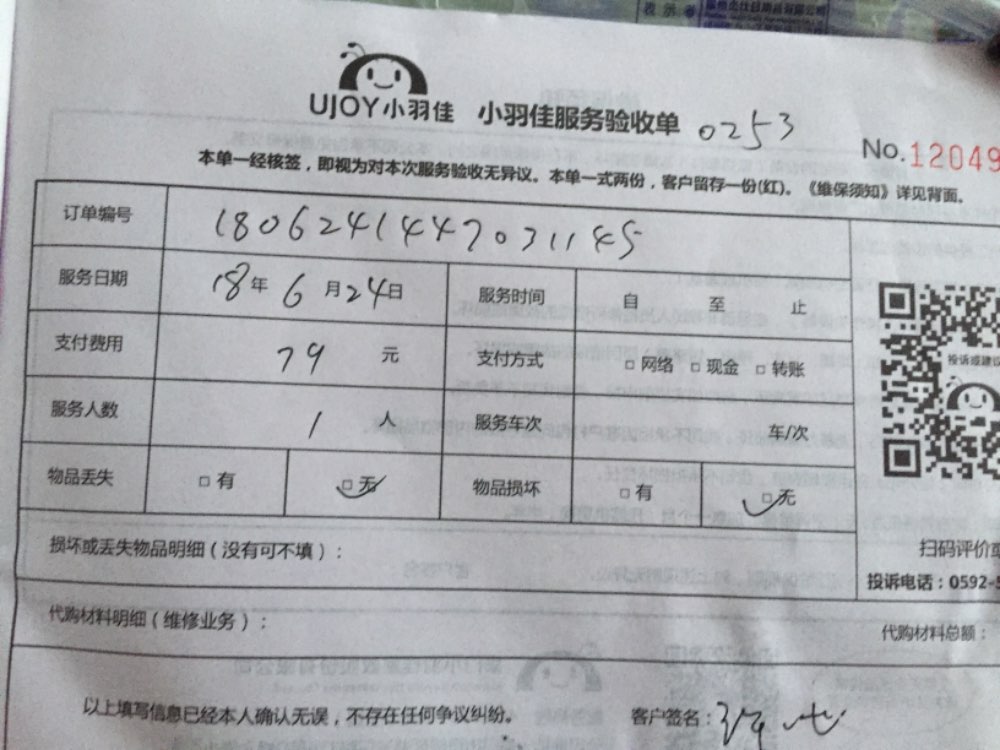 UJOY小羽佳 小羽佳服务验收单 0253
No.12049
本单一经核签，即视为对本次服务验收无异议。本单一式两份，客户留存一份(红)。《维保须知》详见背面。
订单编号 1806241447031145
服务日期 18年 6月24日 服务时间 自 至 止
支付费用 79 元 支付方式 □ 网络 □ 现金 □ 转账
投诉或建议
服务人数 1 人 服务车次 车/次
物品丢失 □ 有 □ 无 物品损坏 □ 有 □ 无
损坏或丢失物品明细（没有可不填）：
扫码评价或
投诉电话：0592-5
代购材料明细（维修业务）：
代购材料总额：
以上填写信息已经本人确认无误，不存在任何争议纠纷。 客户签名：